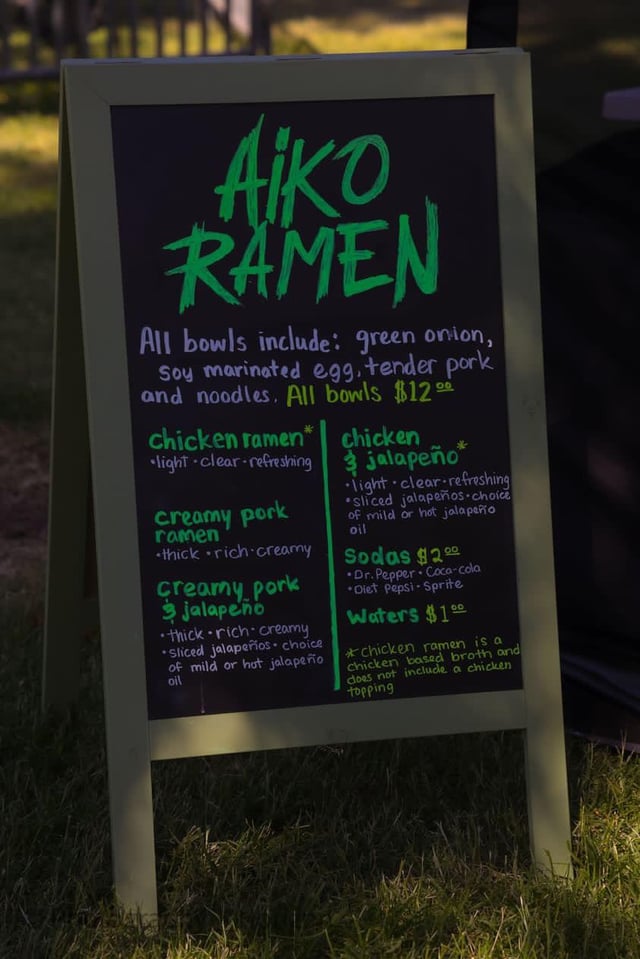 AiKO
RAMEN
All bowls include: green onion,
soy marinated egg, tender pork
and noodles. All bowls $12.00
chicken ramen*
•light•clear•refreshing
creamy pork
ramen
•thick •rich•creamy
creamy pork
& jalapeño
•thick•rich•creamy
•sliced jalapeños•choice
of mild or hot jalapeño
oil
chicken
& jalapeño*
•light•clear•refreshing
•sliced jalapeños•choice
of mild or hot jalapeño
oil
Sodas $2.00
•Dr. Pepper•Coca-cola
•Diet Pepsi•Sprite
Waters $1.00
*chicken ramen is a
chicken based broth and
does not include a chicken
topping